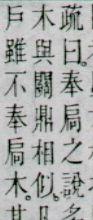 疏曰。奉扃之說
木與關鼎相似。
戶雖不奉扃木。其